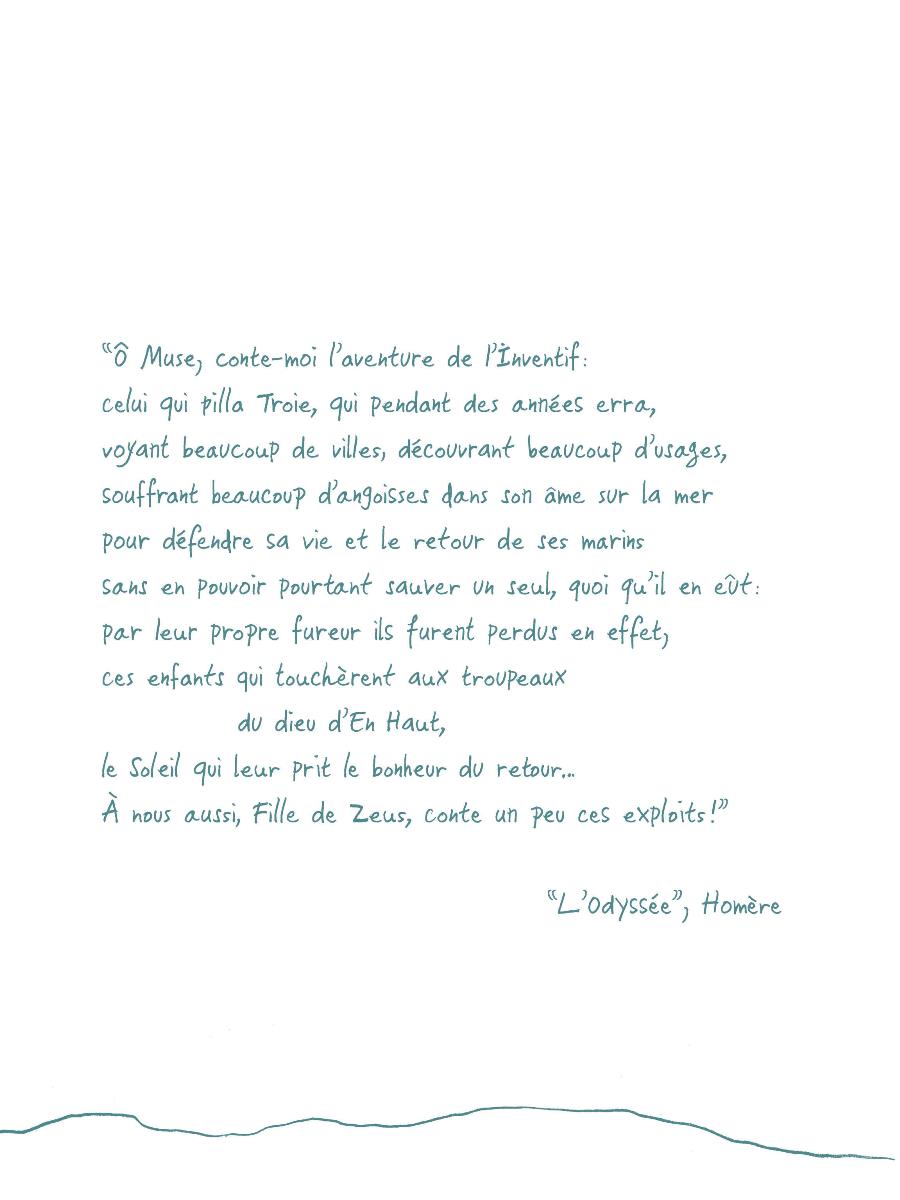 “Ô Muse, conte-moi l’aventure de l’Inventif:
celui qui pilla Troie, qui pendant des années erra,
voyant beaucoup de villes, découvrant beaucoup d’usages,
souffrant beaucoup d’angoisses dans son âme sur la mer
pour défendre sa vie et le retour de ses marins
sans en pouvoir pourtant sauver un seul, quoi qu’il en eût:
par leur propre fureur ils furent perdus en effet,
ces enfants qui touchèrent aux troupeaux
du dieu d’En Haut,
le Soleil qui leur prit le bonheur du retour...
À nous aussi, Fille de Zeus, conte un peu ces exploits!”
“L’Odyssée”, Homère